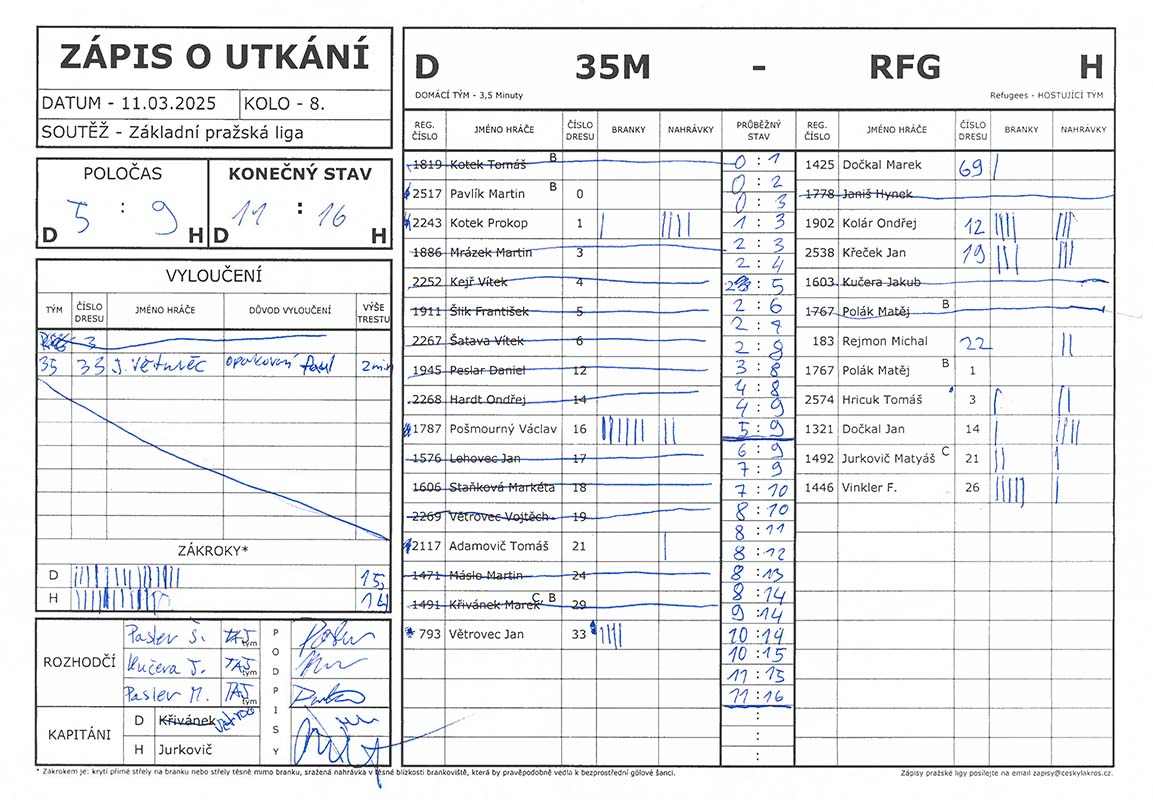 ZÁPIS O UTKÁNÍ
DATUM - 11.03.2025 KOLO - 8.
SOUTĚŽ - Základní pražská liga
POLOČAS
5 : 9
D H
KONEČNÝ STAV
11 : 16
D H
VYLOUČENÍ
TÝM ČÍSLO DRESU JMÉNO HRÁČE DŮVOD VYLOUČENÍ VÝŠE TRESTU
3
35 33 J. Větrovec opakovaný faul 2 min
ZÁKROKY*
D 15
H 14
ROZHODČÍ
Paslev Š. TAJ tým
Kučera J. TAJ tým
Paslev M. TAJ tým
PODPISY
KAPITÁNI
D Křivánek
H Jurkovič
D 35M - RFG H
DOMÁCÍ TÝM - 3,5 Minuty Refugees - HOSTUJÍCÍ TÝM
REG. ČÍSLO JMÉNO HRÁČE ČÍSLO DRESU BRANKY NAHRÁVKY PRŮBĚŽNÝ STAV REG. ČÍSLO JMÉNO HRÁČE ČÍSLO DRESU BRANKY NAHRÁVKY
1819 Kotek Tomáš B
2517 Pavlík Martin B 0
2243 Kotek Prokop 1 | ||||
1886 Mrázek Martin 3
2252 Kejř Vítek 4
1911 Šlik František 5
2267 Šatava Vítek 6
1945 Peslar Daniel 12
2268 Hardt Ondřej 14
1787 Pošmourný Václav 16 ||||||| ||
1576 Lehovec Jan 17
1606 Staňková Markéta 18
2269 Větrovec Vojtěch 19
2117 Adamovič Tomáš 21 |
1471 Máslo Martin 24
1491 Křivánek Marek C, B 29
793 Větrovec Jan 33 ||||
0 : 1
0 : 2
0 : 3
1 : 3
2 : 3
2 : 4
2 : 5
2 : 6
2 : 7
2 : 8
3 : 8
4 : 8
4 : 9
5 : 9
6 : 9
7 : 9
7 : 10
8 : 10
8 : 11
8 : 12
8 : 13
8 : 14
9 : 14
10 : 14
10 : 15
11 : 15
11 : 16
:
:
1425 Dočkal Marek 69 |
1778 Janiš Hynek
1902 Kolár Ondřej 12 |||| |||
2538 Křeček Jan 19 ||| |||
1603 Kučera Jakub
1767 Polák Matěj B
183 Rejmon Michal 22 ||
1767 Polák Matěj B 1
2574 Hricuk Tomáš 3 | ||
1321 Dočkal Jan 14 | ||||
1492 Jurkovič Matyáš C 21 || |
1446 Vinkler F. 26 ||||| |
* Zákrokem je: krytí přímé střely na branku nebo střely těsně mimo branku, sražená nahrávka v těsné blízkosti brankoviště, která by pravěpodobně vedla k bezprostřední gólové šanci.
Zápisy pražské ligy posílejte na email zapisy@ceskylakros.cz.